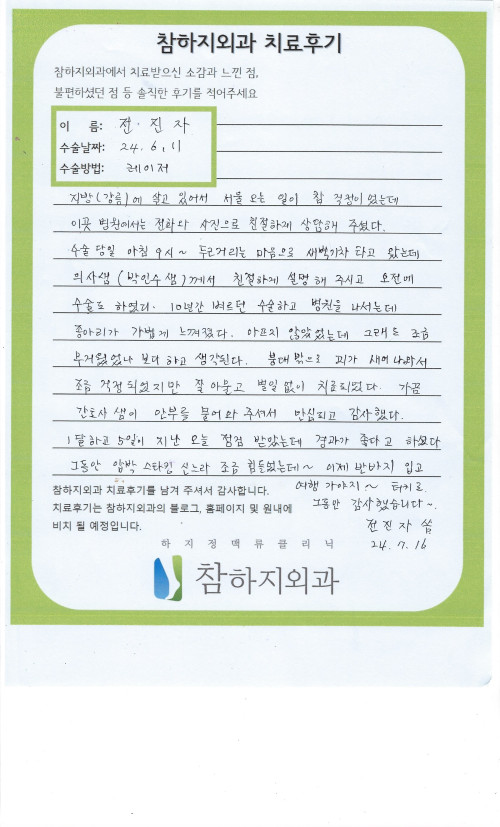 참하지외과 치료후기
참하지외과에서 치료받으신 소감과 느낀 점,
불편하셨던 점 등 솔직한 후기를 적어주세요
이 름: 전·진자
수술날짜: 24. 6, 11
수술방법: 레이저
지방(강릉)에 살고 있어서 서울 오는 일이 참 걱정이었는데
이곳 병원에서는 전화다 사진으로 친절하게 상담해 주셨다.
수술 당일 아침 9시~ 두근거리는 마음으로 새벽기차 타고 왔는데
의사샘 (박인수샘)께서 친절하게 설명해 주시고 오전에
수술도 하였다. 10년간 벼르던 수술하고 병원을 나서는데
종아리가 가볍게 느껴졌다. 아프지 않았었는데 그래도 조금
무거웠었나 보다 하고 생각된다. 붕대 밖으로 피가 새어나와서
조금 걱정되었지만 잘 아물고 별일 없이 치료되었다. 가끔
간호사 샘이 안부를 물어와 주셔서 안심되고 감사했다.
1달하고 5일이 지난 오늘 점검 받았는데 경과가 좋다고 하셨다
그동안 압박 스타킹 신느라 조금 힘들었는데~ 이제 반바지 입고
여행 가야지~
그동안 감사했습니다~.
전진자 씀
24. 7. 16
참하지외과 치료후기를 남겨 주셔서 감사합니다.
치료후기는 참하지외과의 블로그, 홈페이지 및 원내에
비치 될 예정입니다.
하지정맥류클리닉
참하지외과